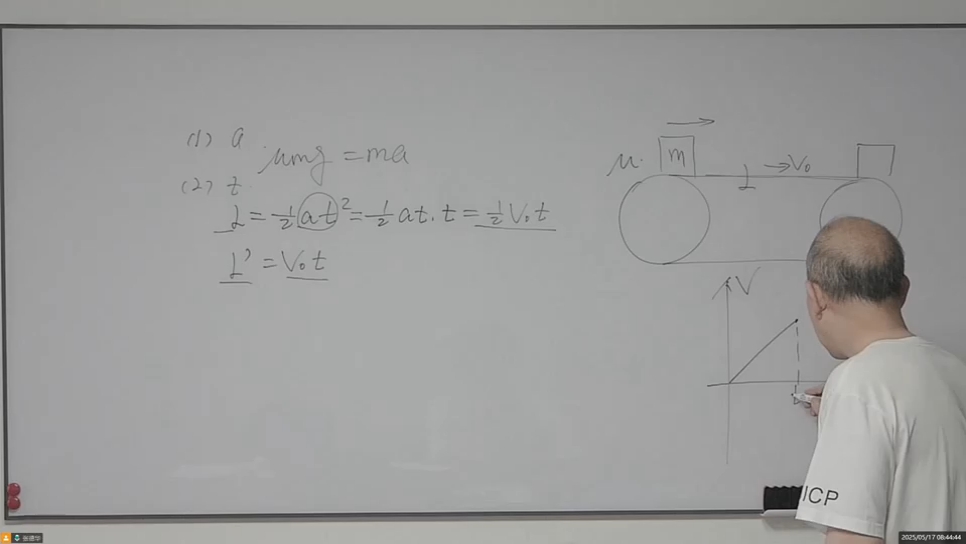 (1) a
μmg = ma
(2) t
L = ½at² = ½at·t = ½V₀t
L' = V₀t
μ m L →V₀
V
ICP
张德华
2025/05/17 08:44:44